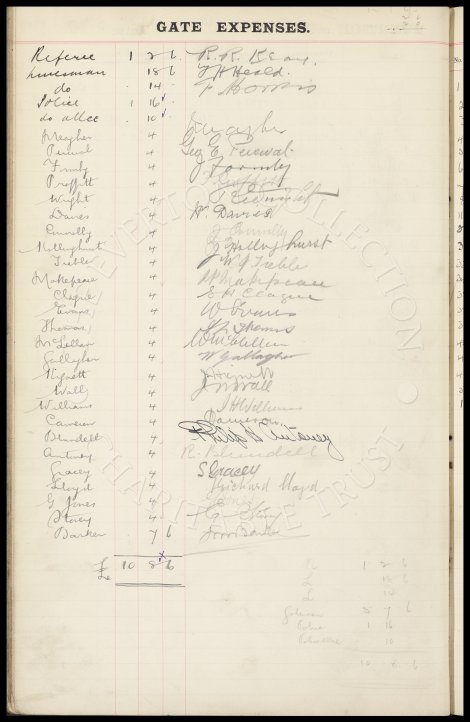 GATE EXPENSES.
Referee 1 2 6
Linesman 18 6 J H Heald.
do 14 F Morris
Police 1 16
do allce 10
Meagher 4
4 Geo E Percival
4 J Formby
Proffitt 4
Wright 4
Davies 4 W. Davies
Connolly 4 J Connolly
Hollinghurst 4 J Hollinghurst
Tieble 4 W J Tieble
Makepeace 4 W Makepeace
Clague 4 E H Clague
Evans 4 W Evans
Thomas 4 Thomas
McLellan 4 W McLellan
Gallagher 4 W Gallagher
Hignett 4 Hignett
Wall 4 J Wall
Williams 4 J H Williams
Cameron 4 Cameron
Blundell 4 R Blundell
4 Philip
Gracey 4 S Gracey
Lloyd 4 Richard Lloyd
G Jones 4 Jones
Storey 4 Storey
Barker 7 6 Barker
£ 10 8 6
£
R 1 2 6
L 18 6
L 14
7 6
Police 1 16
10
10 8 6
EVERTON COLLECTION CHARITABLE TRUST